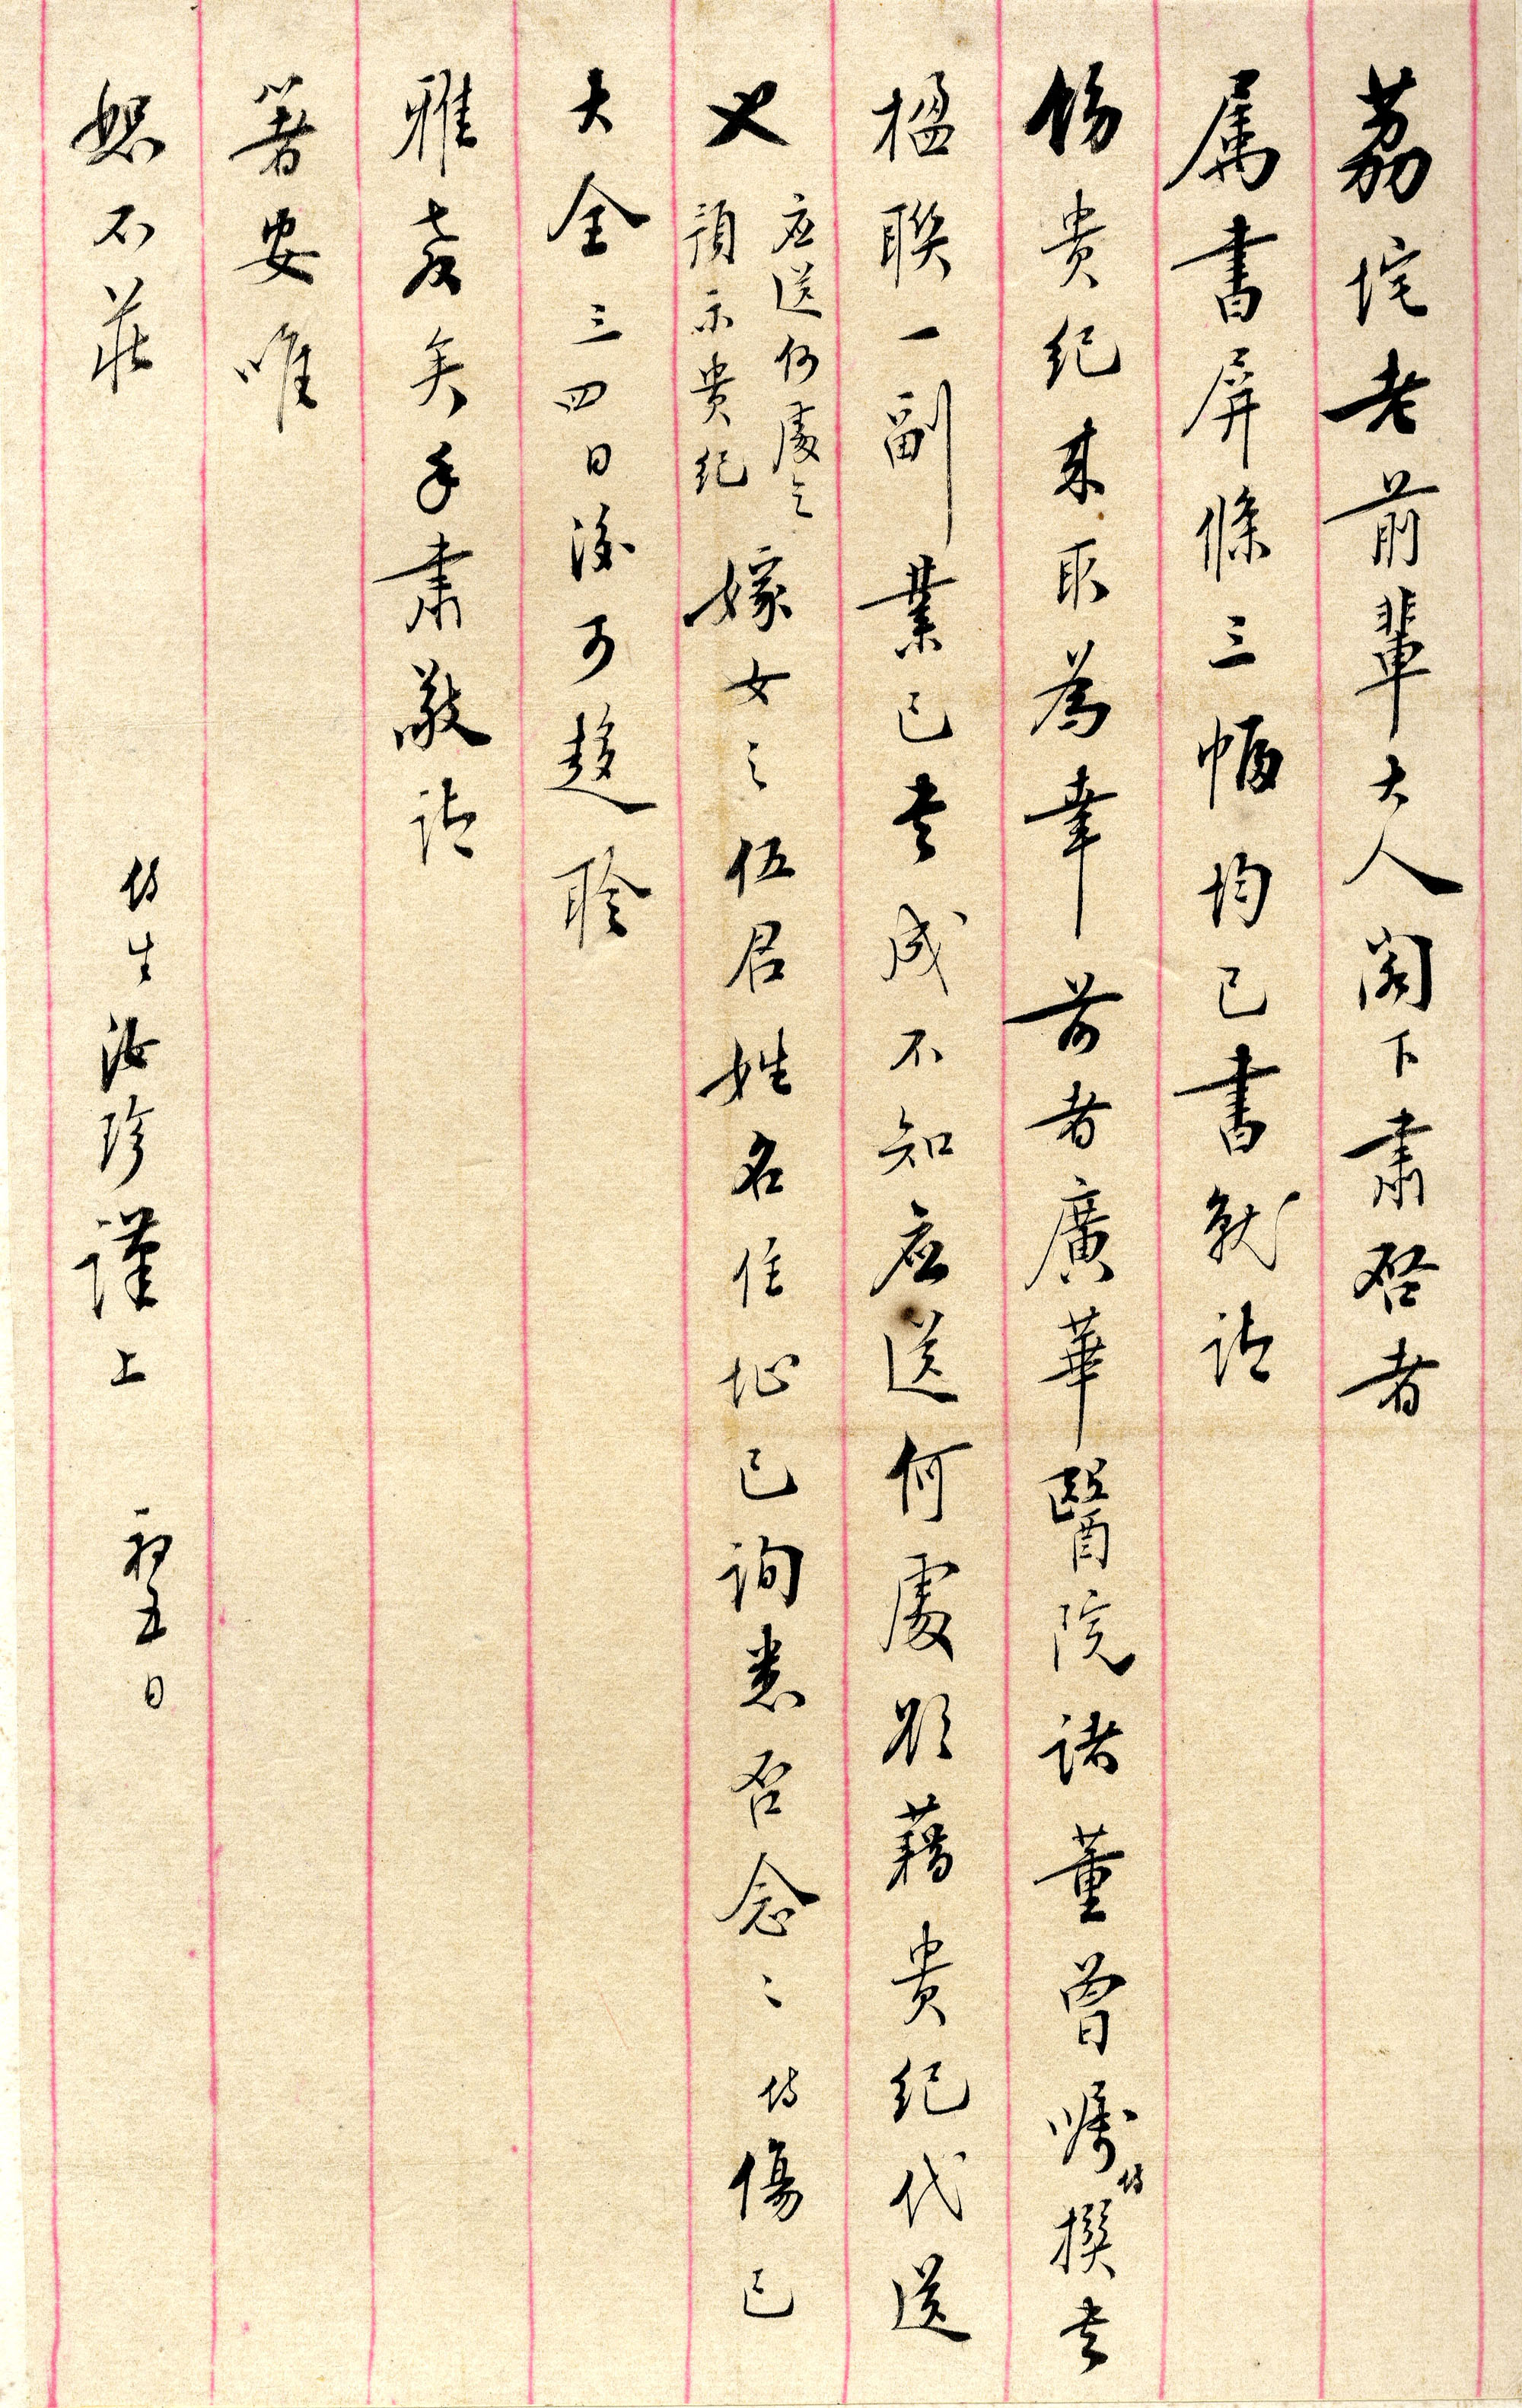 荔垞老前輩大人閣下肅啓者
属書屏條三幅均已書就請
飭貴紀來取為幸前者廣華醫院諸董曾嘱侍撰书
楹聯一副業已书成不知应送何處欲藉貴紀代送
也应送何處乞
預示貴紀嫁女之伍君姓名住址已詢悉否念〻侍傷已
大全三四日後可趋聆
雅教矣手肅敬請
箸安唯
恕不莊
侍生汝珍謹上 初五日